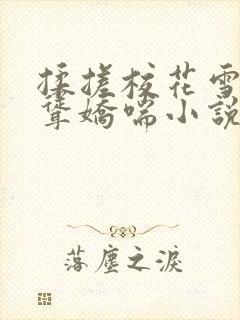 揉搓校花雪
聳嬌喘小說
落塵之淚